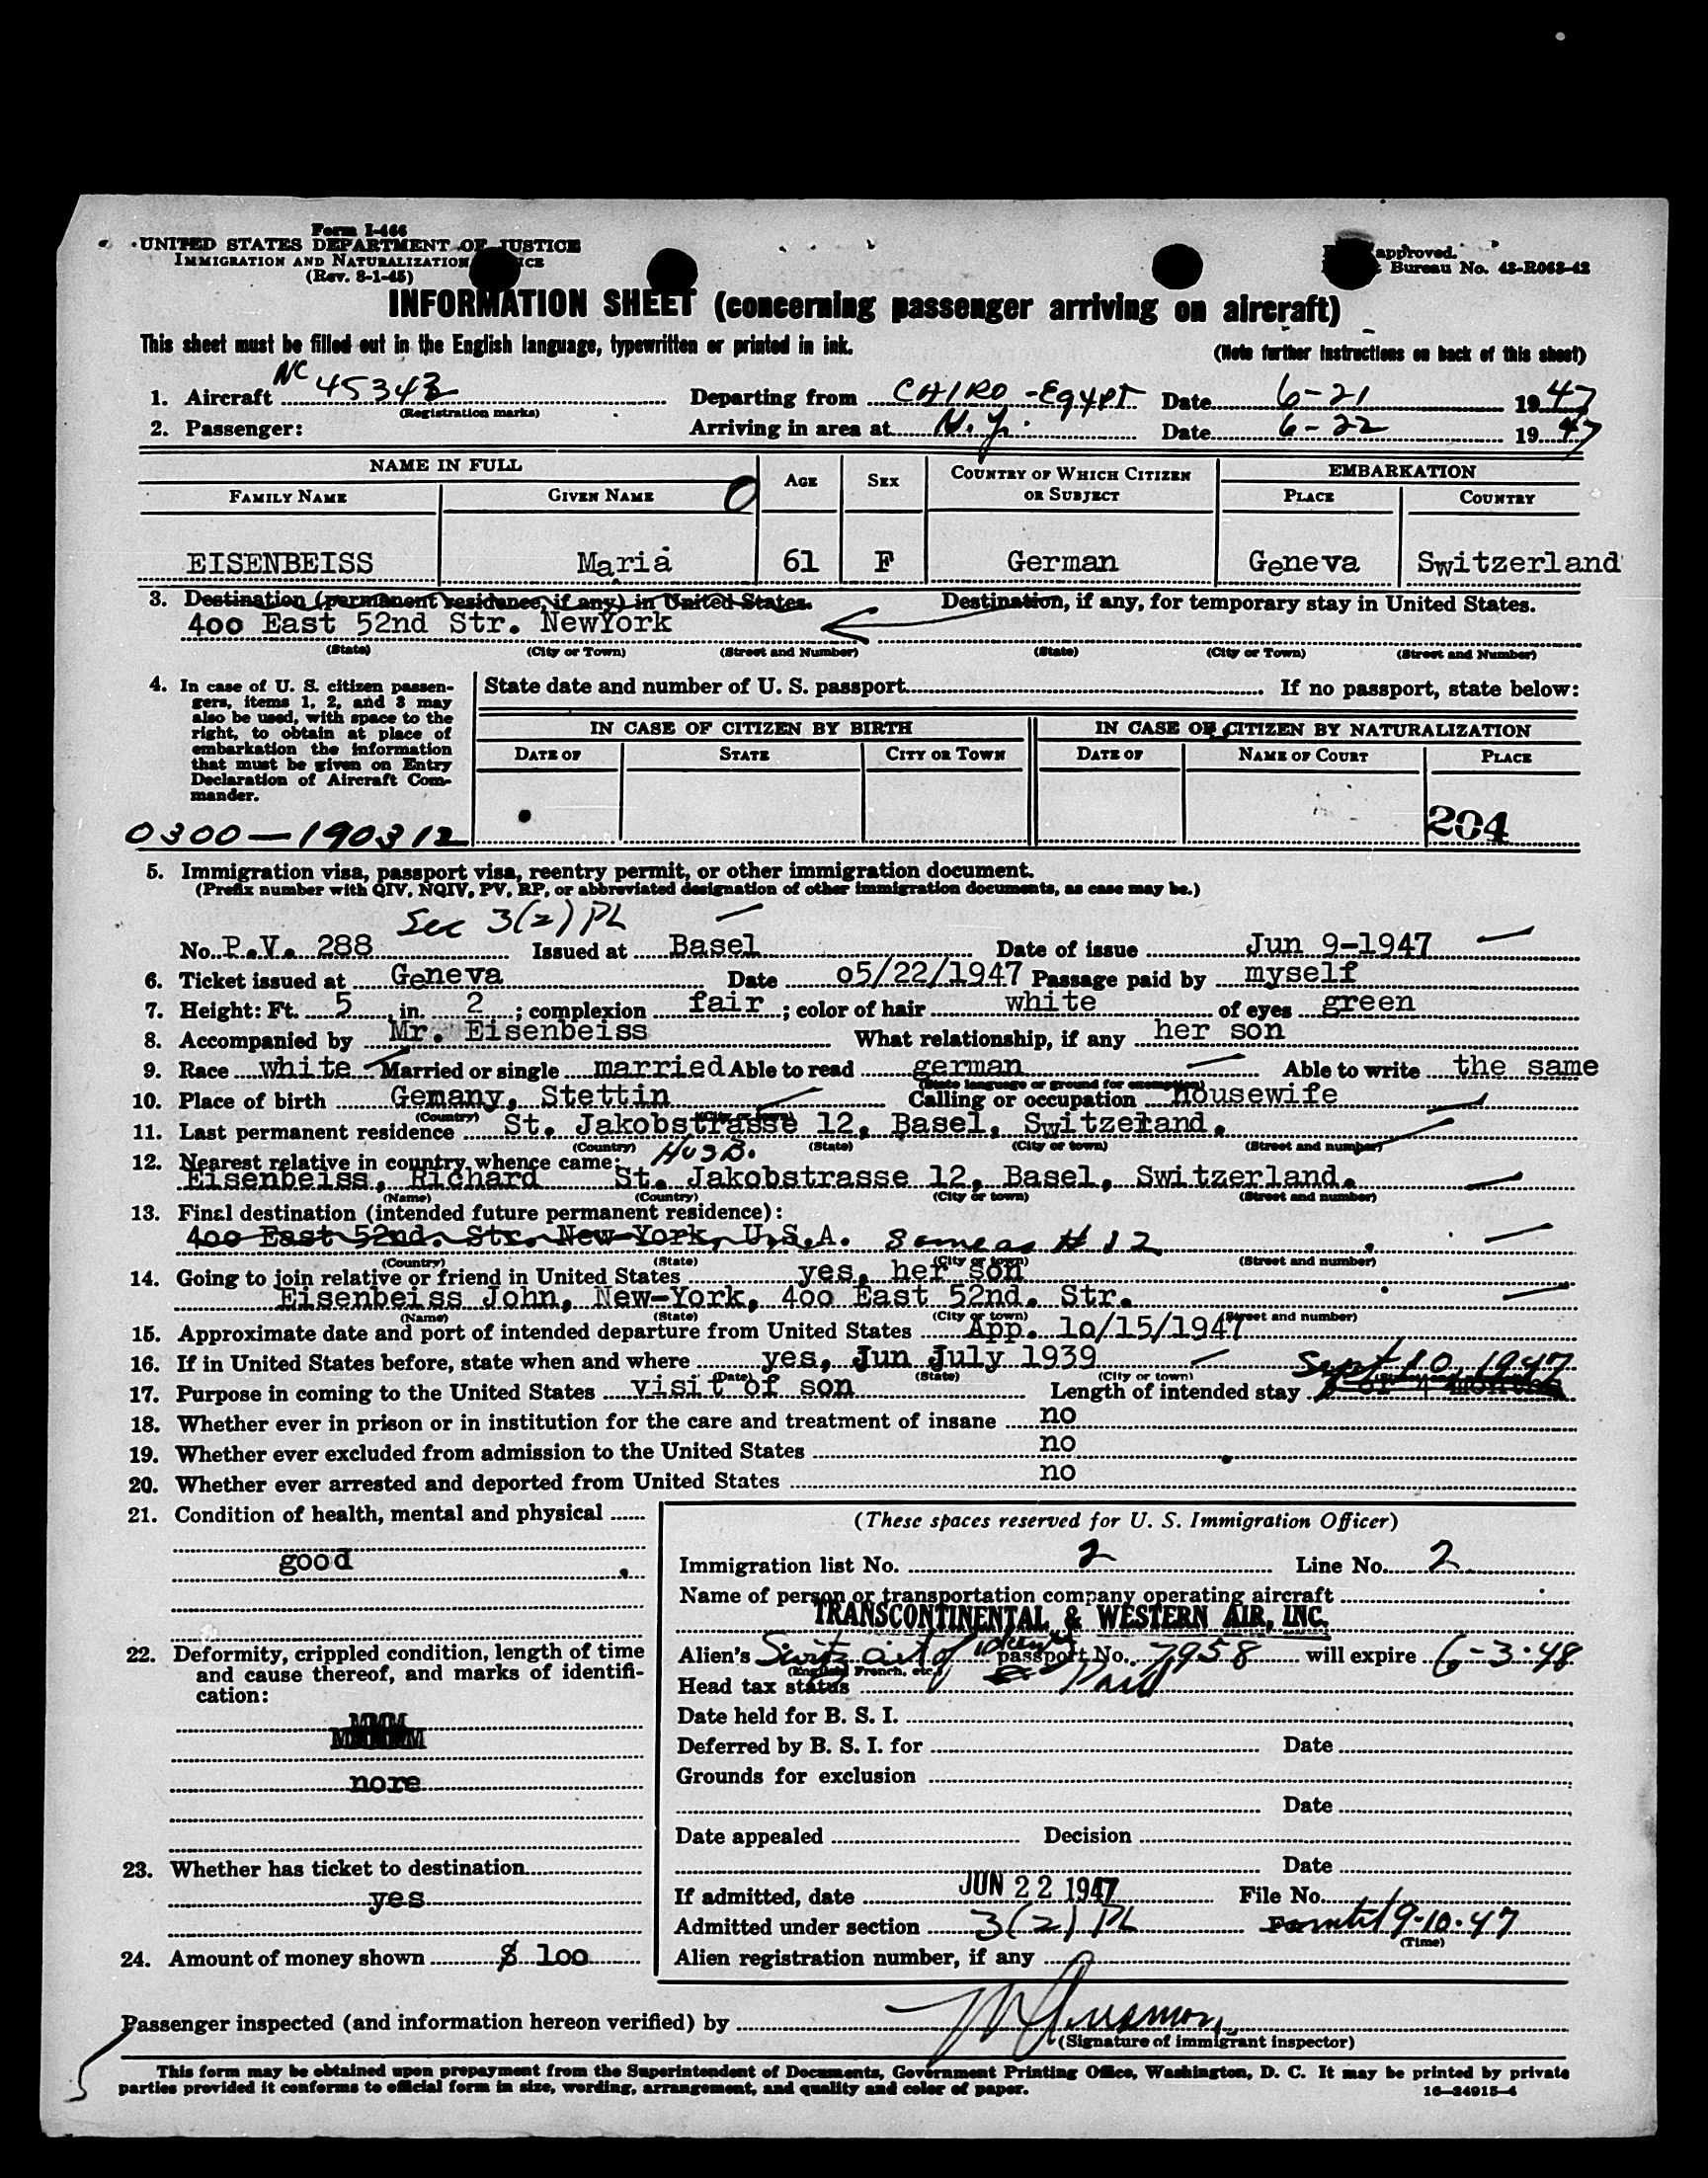 Form I-466
UNITED STATES DEPARTMENT OF JUSTICE
IMMIGRATION AND NATURALIZATION
(Rev. 8-1-45)
approved.
Bureau No. 43-R063-42
INFORMATION SHEET (concerning passenger arriving on aircraft)
This sheet must be filled out in the English language, typewritten or printed in ink.
(Note further instructions on back of this sheet)
1. Aircraft NC 45343 Departing from CAIRO - EGYPT Date 6-21 1947
(Registration marks)
2. Passenger: Arriving in area at N.Y. Date 6-22 1947
NAME IN FULL AGE SEX COUNTRY OF WHICH CITIZEN OR SUBJECT EMBARKATION
FAMILY NAME GIVEN NAME PLACE COUNTRY
EISENBEISS Maria 61 F German Geneva Switzerland
3. Destination (permanent residence, if any) in United States. Destination, if any, for temporary stay in United States.
4oo East 52nd Str. NewYork
(State) (City or Town) (Street and Number) (State) (City or Town) (Street and Number)
4. In case of U. S. citizen passen-
gers, items 1, 2, and 3 may
also be used, with space to the
right, to obtain at place of
embarkation the information
that must be given on Entry
Declaration of Aircraft Com-
mander.
State date and number of U. S. passport If no passport, state below:
IN CASE OF CITIZEN BY BIRTH IN CASE OF CITIZEN BY NATURALIZATION
DATE OF STATE CITY OR TOWN DATE OF NAME OF COURT PLACE
0300-190312 204
5. Immigration visa, passport visa, reentry permit, or other immigration document.
(Prefix number with QIV, NQIV, PV, RP, or abbreviated designation of other immigration documents, as case may be.)
Sec 3(2) PL
No. P.V. 288 Issued at Basel Date of issue Jun 9-1947
6. Ticket issued at Geneva Date o5/22/1947 Passage paid by myself
7. Height: Ft. 5 in. 2 ; complexion fair ; color of hair white of eyes green
8. Accompanied by Mr. Eisenbeiss What relationship, if any her son
9. Race white Married or single married Able to read german Able to write the same
(State language or ground for exemption)
10. Place of birth Gemany, Stettin Calling or occupation housewife
(Country) (City or town)
11. Last permanent residence St. Jakobstrasse 12, Basel, Switzerand.
(Country) (State) (City or town) (Street and number)
12. Nearest relative in country whence came: HUSB.
Eisenbeiss, Richard St. Jakobstrasse 12, Basel, Switzerland.
(Name) (Country) (City or town) (Street and number)
13. Final destination (intended future permanent residence):
4oo East 52nd. Str. New-York, U.S.A. Same as # 12
(Country) (State) (City or town) (Street and number)
14. Going to join relative or friend in United States yes, her son
Eisenbeiss John, New-York, 4oo East 52nd. Str.
(Name) (State) (City or town) (Street and number)
15. Approximate date and port of intended departure from United States App. 1o/15/1947
16. If in United States before, state when and where yes, Jun July 1939
(Date) (State) (City or town)
Sept 10, 1947
17. Purpose in coming to the United States visit of son Length of intended stay or 4 months
18. Whether ever in prison or in institution for the care and treatment of insane no
19. Whether ever excluded from admission to the United States no
20. Whether ever arrested and deported from United States no
21. Condition of health, mental and physical
good
22. Deformity, crippled condition, length of time
and cause thereof, and marks of identifi-
cation:
nore
23. Whether has ticket to destination
yes
24. Amount of money shown $ 1oo
(These spaces reserved for U. S. Immigration Officer)
Immigration list No. 2 Line No. 2
Name of person or transportation company operating aircraft
TRANSCONTINENTAL & WESTERN AIR, INC.
Alien's passport No. 7958 will expire 6-3-48
(English, French, etc.)
Head tax status Paid
Date held for B. S. I.
Deferred by B. S. I. for Date
Grounds for exclusion
Date
Date appealed Decision
Date
If admitted, date JUN 22 1947 File No.
Admitted under section 3(2) PL 9-10-47
(Time)
Alien registration number, if any
Passenger inspected (and information hereon verified) by
(Signature of immigrant inspector)
This form may be obtained upon prepayment from the Superintendent of Documents, Government Printing Office, Washington, D. C. It may be printed by private
parties provided it conforms to official form in size, wording, arrangement, and quality and color of paper.
16-24915-4